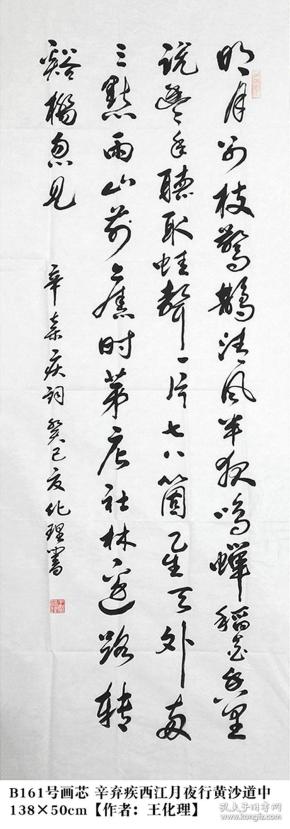 明月别枝惊鹊清风半夜鸣蝉稻花香里
说丰年听取蛙声一片七八箇星天外两
三點雨山前旧时茅店社林边路转
谿橋忽见
辛弃疾词癸巳夏化理書
B161号画芯 辛弃疾西江月夜行黄沙道中
138×50cm【作者：王化理】